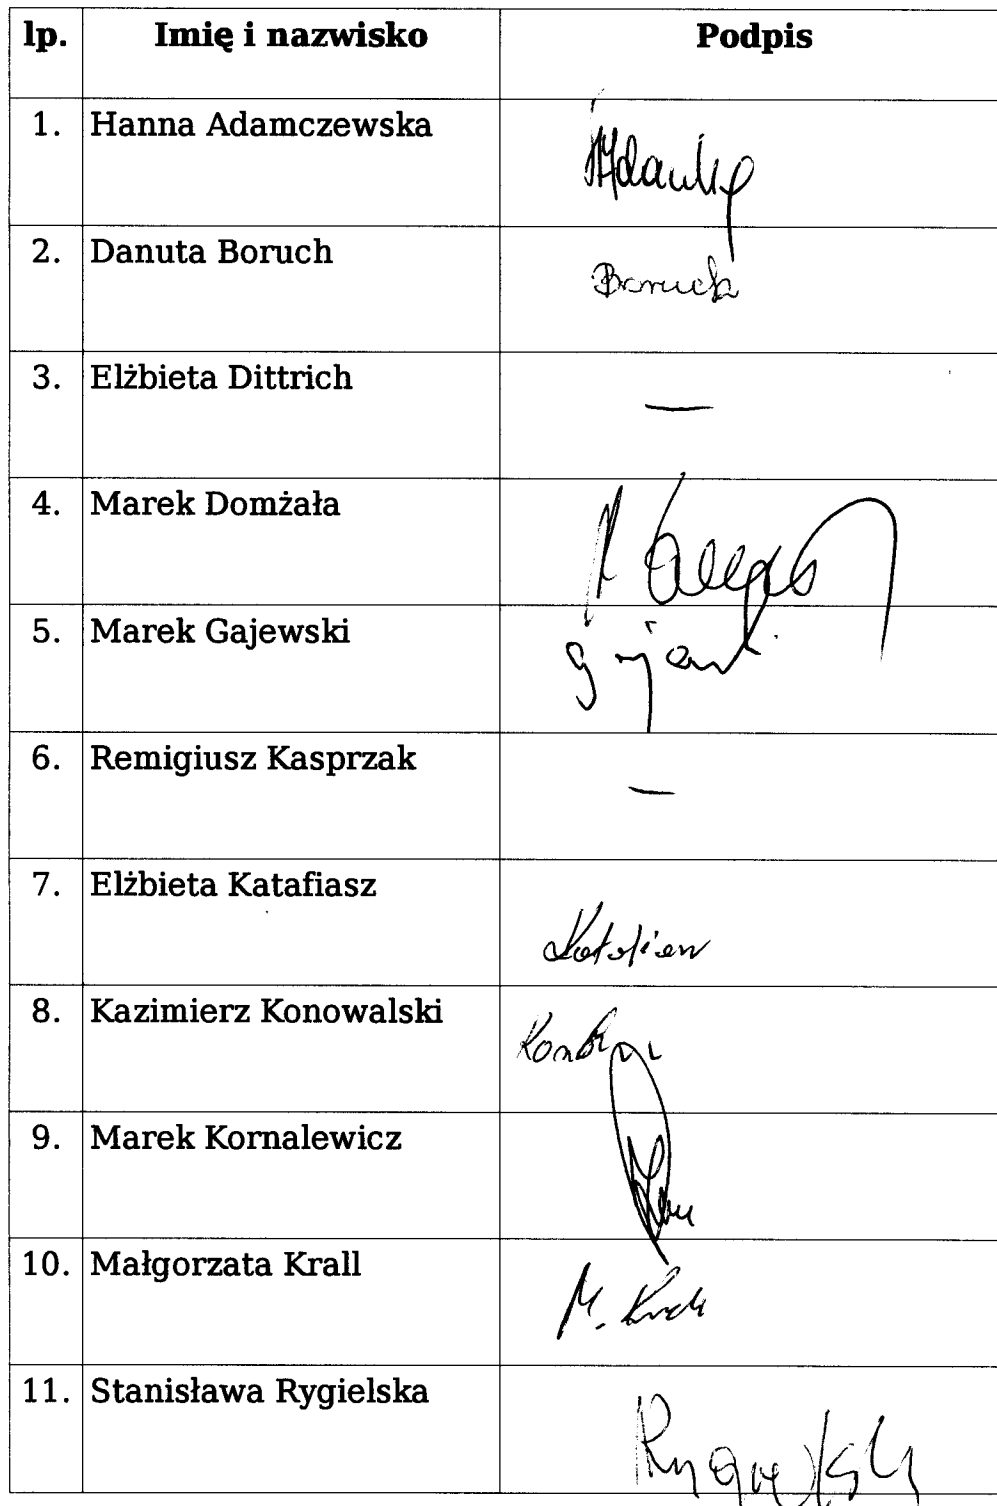 lp. Imię i nazwisko Podpis
1. Hanna Adamczewska
2. Danuta Boruch Boruch
3. Elżbieta Dittrich —
4. Marek Domżała
5. Marek Gajewski
6. Remigiusz Kasprzak —
7. Elżbieta Katafiasz
8. Kazimierz Konowalski
9. Marek Kornalewicz
10. Małgorzata Krall M. Krall
11. Stanisława Rygielska